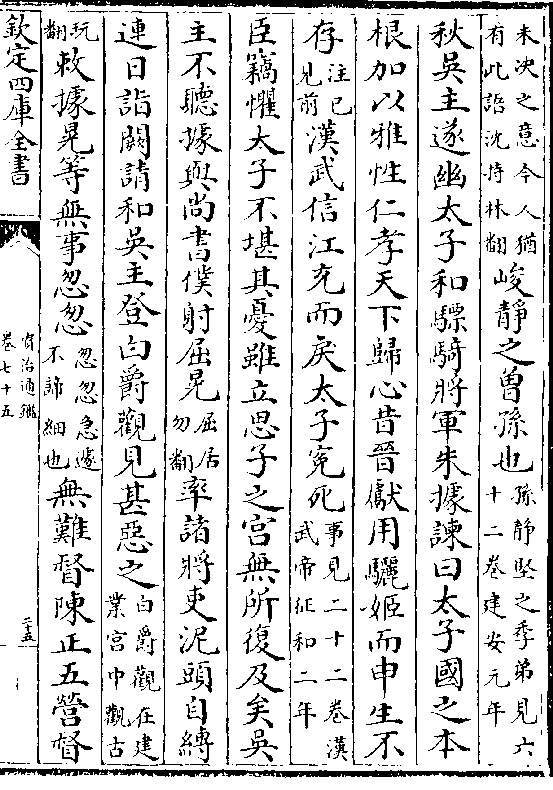 未決之意今人猶有此語沈恃林翻峻靜之曽孫也孫靜堅之季弟見六十二卷建安元年
秋吳主遂幽太子和驃騎將軍朱據諫曰太子國之本
根加以雅性仁孝天下歸心昔晉獻用驪姬而申生不
存注已見前漢武信江充而戾太子寃死事見二十二卷漢武帝征和二年
臣竊懼太子不堪其憂雖立思子之宮無所復及矣吳
主不聽據與尚書僕射屈晃屈居勿翻率諸將吏泥頭自縛
連日詣闕請和吳主登白爵觀見甚惡之白爵觀在建業宮中觀古
玩翻敕據晃等無事忽忽忽忽急遽不諦細也無難督陳正五營督
欽定四庫全書
資治通鑑
卷七十五